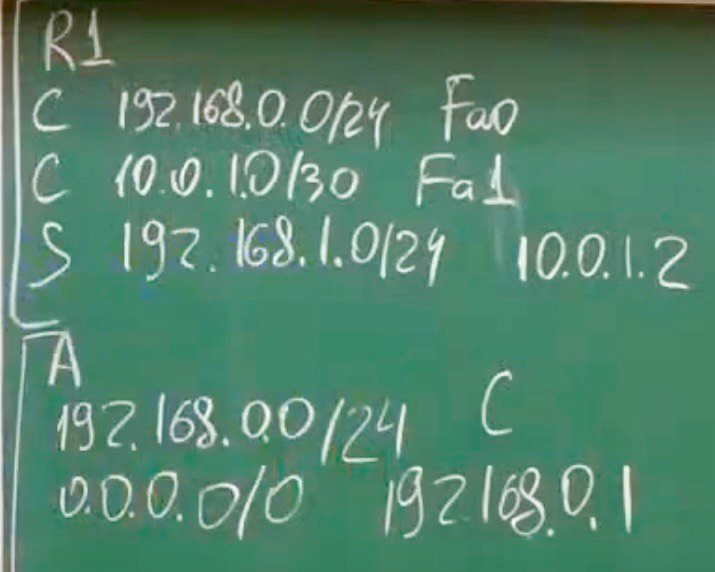 R1
C 192.168.0.0/24 Fa0
C 10.0.1.0/30 Fa1
S 192.168.1.0/24 10.0.1.2
A
192.168.0.0/24 C
0.0.0.0/0 192.168.0.1